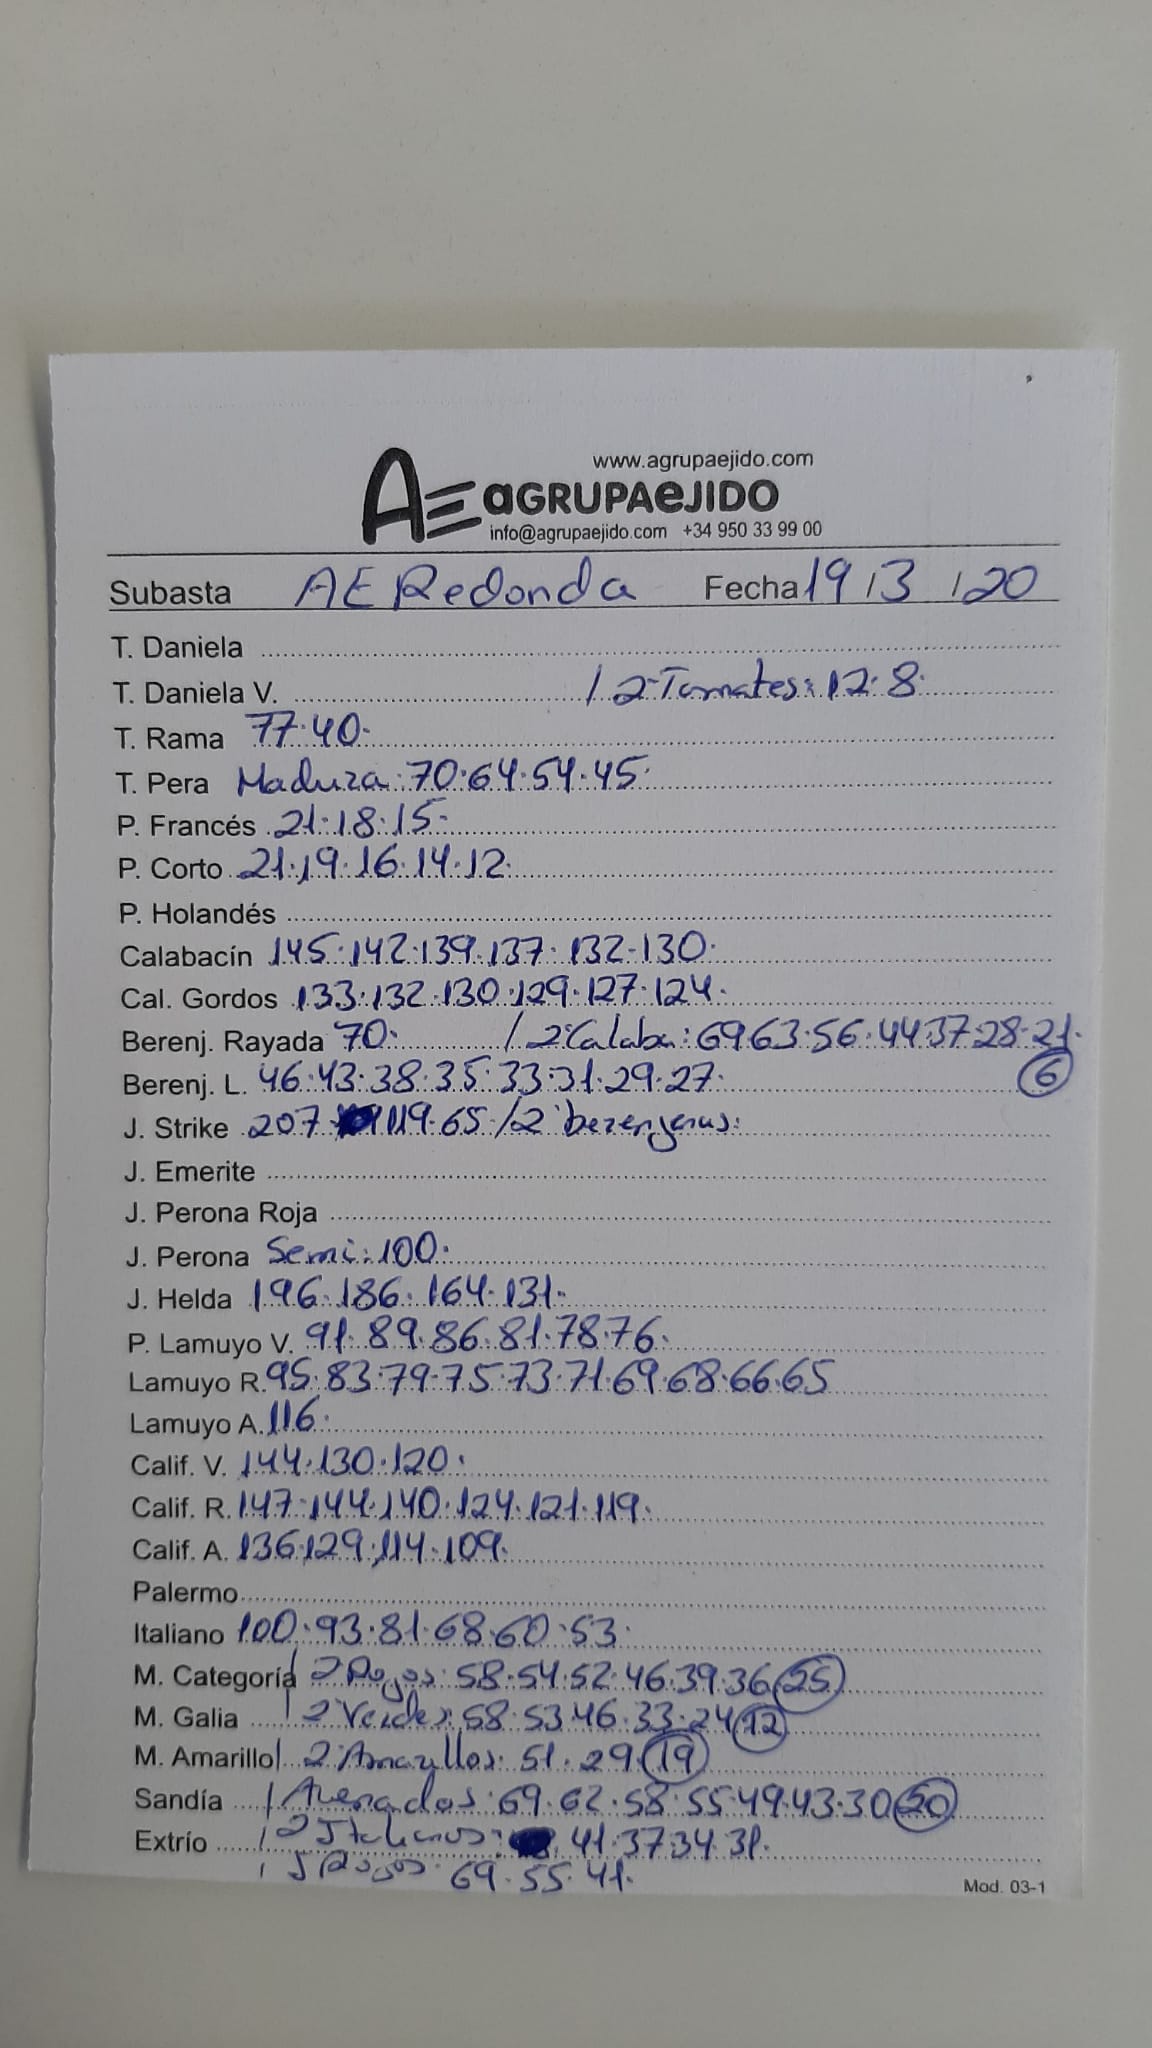 www.agrupaejido.com
AE aGRUPAeJIDO
info@agrupaejido.com +34 950 33 99 00
Subasta AE Redonda Fecha 19/3/20
T. Daniela
T. Daniela V. / 2ªTomates: 12·8·
T. Rama 77·40·
T. Pera Madura: 70·64·54·45·
P. Francés 21·18·15·
P. Corto 21·19·16·14·12·
P. Holandés
Calabacín 145·142·139·137·132·130·
Cal. Gordos 133·132·130·129·127·124·
Berenj. Rayada 70· / 2ªCalaba: 69·63·56·44·37·28·21·
Berenj. L. 46·43·38·35·33·31·29·27· 6
J. Strike 207· 119·65·/2ªberenjenas:
J. Emerite
J. Perona Roja
J. Perona Semi: 100·
J. Helda 196·186·164·131·
P. Lamuyo V. 91·89·86·81·78·76·
Lamuyo R. 95·83·79·75·73·71·69·68·66·65
Lamuyo A. 116·
Calif. V. 144·130·120·
Calif. R. 147·144·140·124·121·119·
Calif. A. 136·129·114·109·
Palermo
Italiano 100·93·81·68·60·53·
M. Categoría / 2ªRojos: 58·54·52·46·39·36 25
M. Galia / 2ªVerdes: 58·53·46·33·24 12
M. Amarillo / 2ªAmarillos: 51·29· 19
Sandía / Asenados: 69·62·58·55·49·43·30 20
Extrío / 2ªItalianos: 41·37·34·31·
/ I Rojos: 69·55·41·
Mod. 03-1